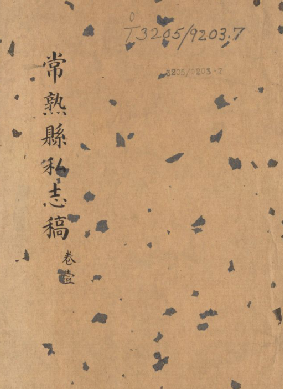 T3205/9203.7
3205/9203.7
常熟縣私志稿
卷壹